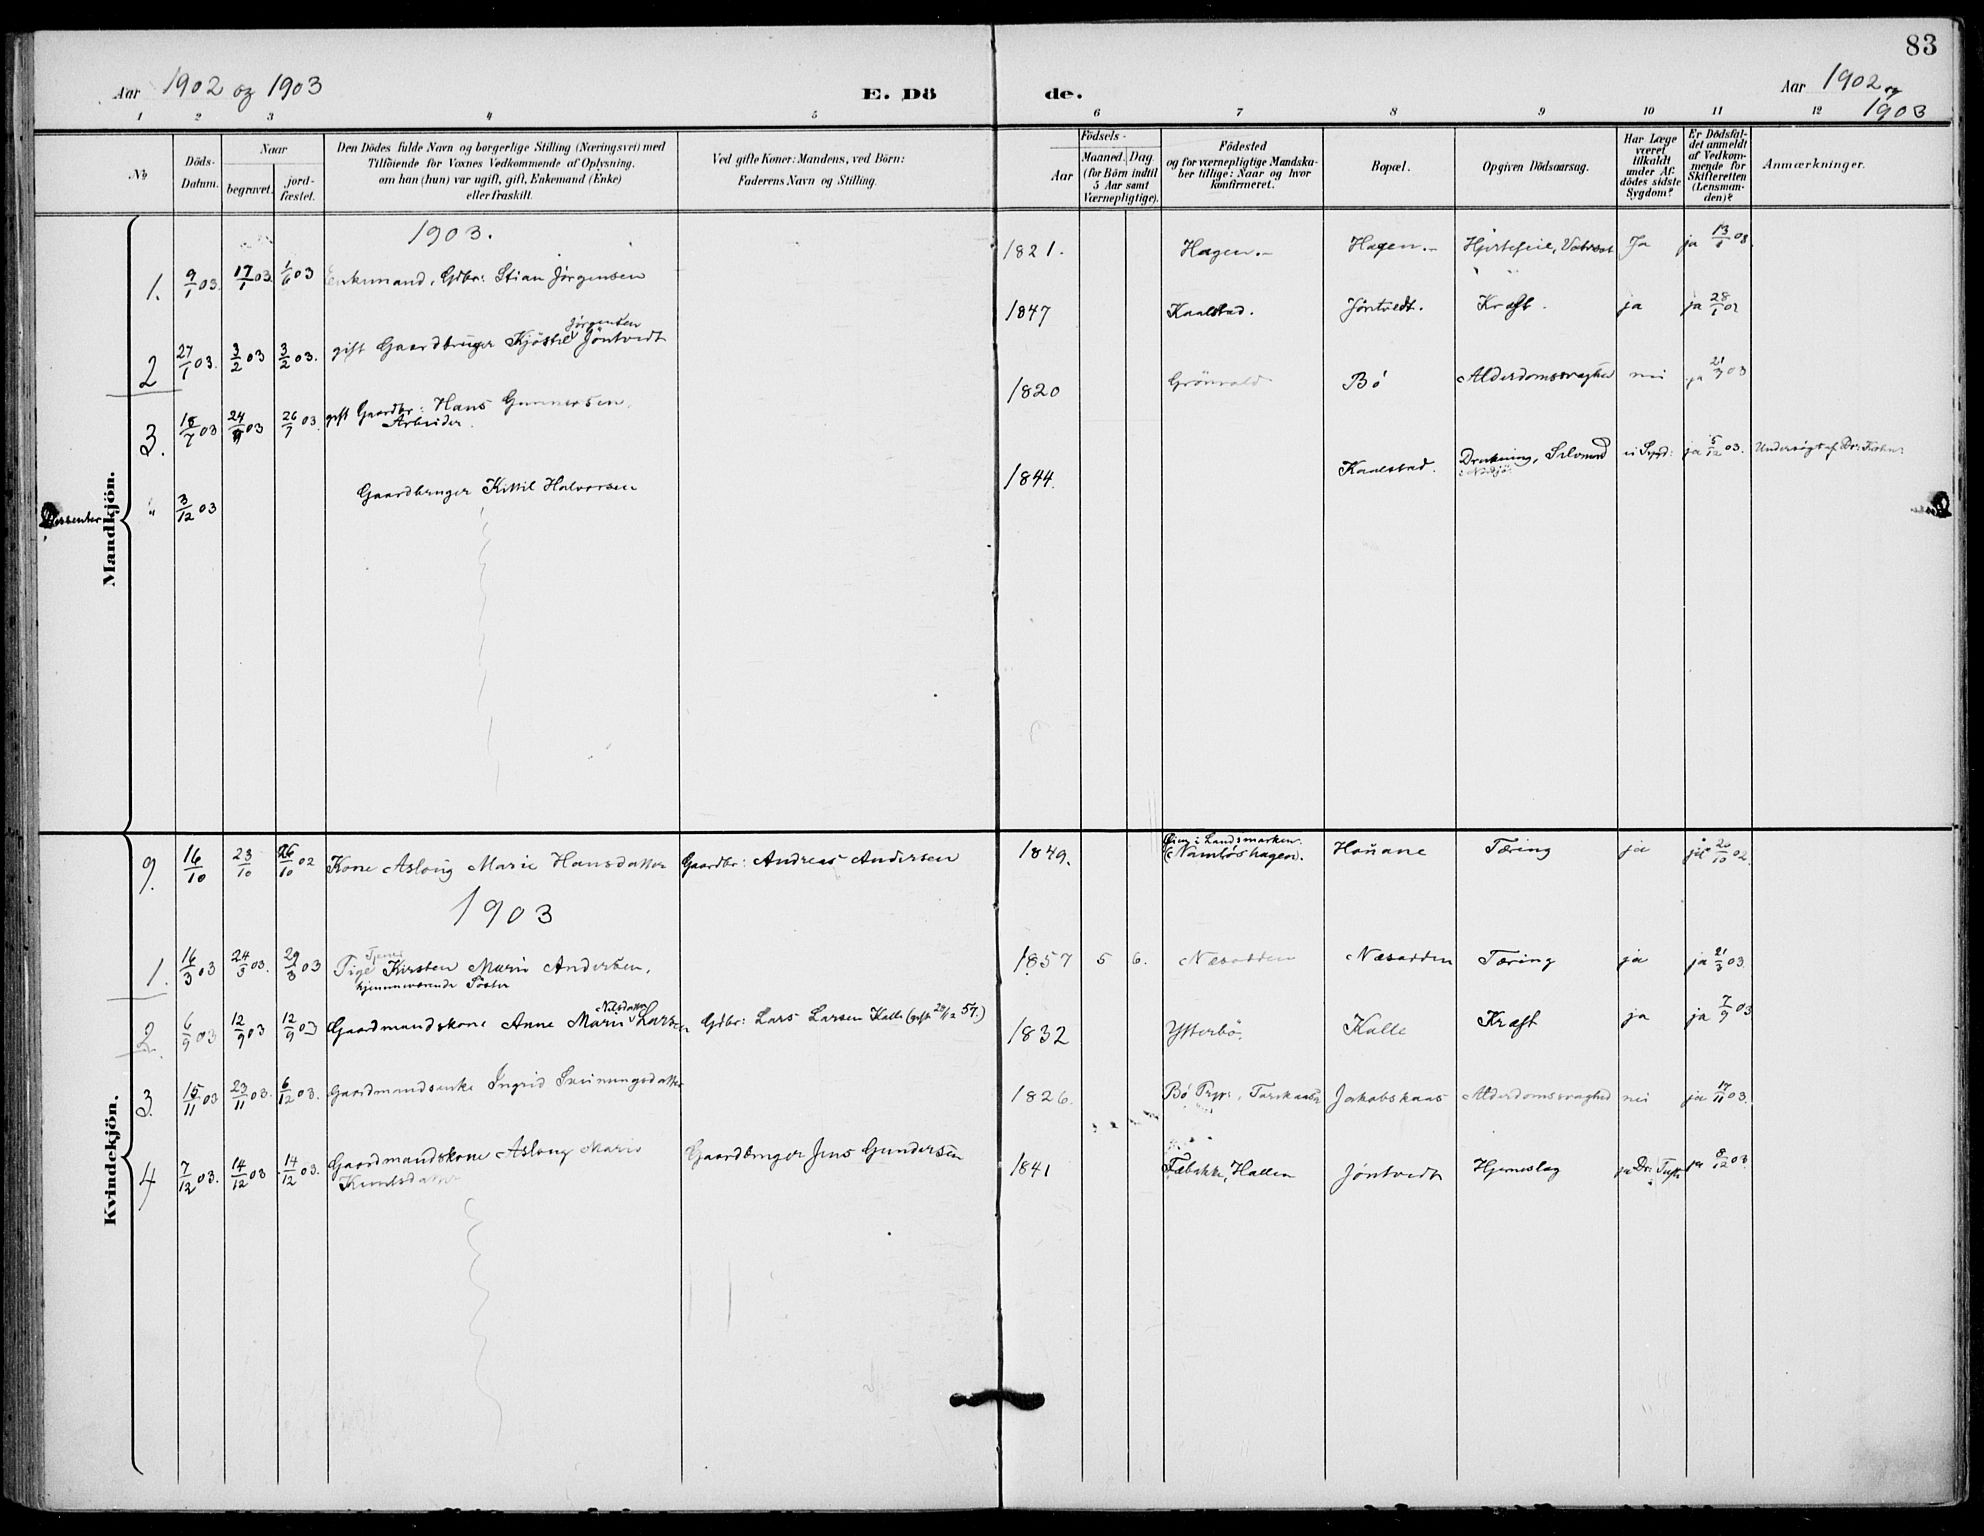 83
Aar 1902 og 1903
E. Dö
de.
Aar 1902 og
1903
1 2 3 4 5 6 7 8 9 10 11 12
No
Döds-
Datum.
Naar
begravet.
jord-
fæstet.
Den Dödes fulde Navn og borgerlige Stilling (Næringsvei) med
Tilföiende for Voxnes Vedkommende af Oplysning,
om han (hun) var ugift, gift, Enkemand (Enke)
eller fraskilt.
Ved gifte Koner: Mandens, ved Börn:
Faderens Navn og Stilling.
Födsels-
Aar
Maaned. Dag
(for Börn indtil
5 Aar samt
Værnepligtige).
Födested
og for værnepligtige Mandska-
ber tillige: Naar og hvor
konfirmeret.
Bopæl.
Opgiven Dödsaarsag.
Har Læge
været
tilkaldt
under Af-
dödes sidste
Sygdom?
Er Dödsfal-
det anmeldt
af Vedkom-
mende for
Skifteretten
(Lensman-
den)?
Anmærkninger.
Mandkjön.
1903.
1. 9/1 03. 17/1 03. 1/6 03 Enkemand, Gdbr: Stian Jörgensen 1821. Hagen.- Hagen.- Hjertefeil, Vatersot Ja ja 13/1 03.
Jörgensen
2 27/1 03. 3/2 03 3/2 03. gift Gaardbruger Kjöstel Jöntvedt 1847 Kaalstad. Jöntvedt. Kræft. ja ja 28/1 03
3. 15/7 03 24/7 03 26/7 03. gift Gaardbr: Hans Gunnersen, 1820 Grönvold Bö Alderdomssvaghed nei ja 21/7 03
Arbeider.
Dissenter " 3/12 03 Gaardbruger Kittil Halvorsen 1844. Kaalstad. Drukning, Selvmord ja 5/12 03. Undersögt af Dr:
Kvindekjön.
9. 16/10 23/10 26/10 02 Kone Aslaug Marie Hansdatter Gaardbr: Andreas Andersen 1849. i Landsmarken. (Namløshagen). Honane Tæring ja ja 20/10 02.
1903
1. 16/3 03 24/3 03. 29/3 03 Pige Kirsten Marie Andersen, 1857 5 6. Næsodden Næsodden Tæring ja ja 21/3 03.
hjemmeværende Söster
Nilsdatter
2. 6/9 03 12/9 03 12/9 03 Gaardmandskone Anne Marie Larsen Gdbr: Lars Larsen Kalle (gift 29/12 57.) 1832 Ytterbö. Kalle Kræft ja ja 7/9 03
3. 15/11 03 23/11 03. 6/12 03. Gaardmandsenke Ingrid Sveinungsdatter 1826. Bö Prgj: Jakobskaas Alderdomssvaghed nei ja 17/11 03.
4 7/12 03. 14/12 03 14/12 03. Gaardmandskone Aslaug Marie Gaardbruger Jens Gundersen 1841 Fæbakke, Hallen Jöntvedt Hjerneslag ja Dr: ja 8/12 03.
Knutsdatter